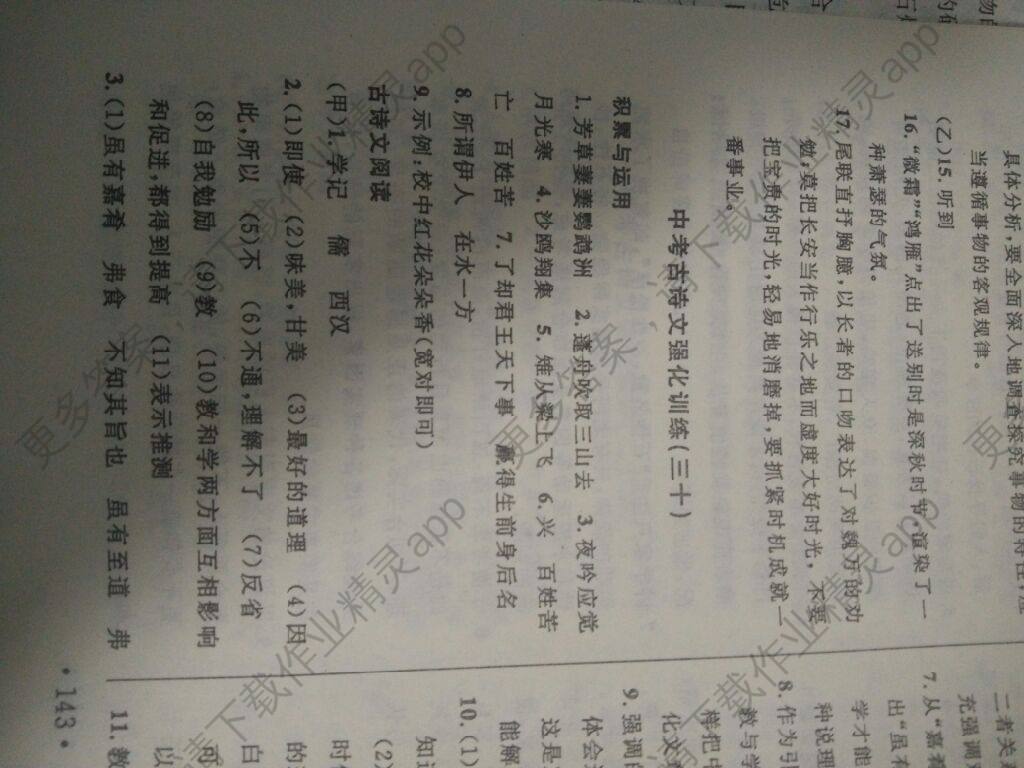 具体分析,要全面深入地调查探究事物的特性,应
当遵循事物的客观规律。
(乙)15.听到
16.“微霜”“鸿雁”点出了送别时是深秋时节,渲染了一
种萧瑟的气氛。
17.尾联直抒胸臆,以长者的口吻表达了对魏万的劝
勉:莫把长安当作行乐之地而虚度大好时光,不要
把宝贵的时光,轻易地消磨掉,要抓紧时机成就一
番事业。
中考古诗文强化训练(三十)
积累与运用
1.芳草萋萋鹦鹉洲 2.蓬舟吹取三山去 3.夜吟应觉
月光寒 4.沙鸥翔集 5.雉从梁上飞 6.兴 百姓苦
亡 百姓苦 7.了却君王天下事 赢得生前身后名
8.所谓伊人 在水一方
9.示例:校中红花朵朵香(宽对即可)
古诗文阅读
(甲)1.学记 儒 西汉
2.(1)即使 (2)味美,甘美 (3)最好的道理 (4)因
此,所以 (5)不 (6)不通,理解不了 (7)反省
(8)自我勉励 (9)教 (10)教和学两方面互相影响
和促进,都得到提高 (11)表示推测
3.(1)虽有嘉肴 弗食 不知其旨也 虽有至道 弗
二者关
充强调
7.从“嘉
出“虽
学才能
8.作为引
种说理
教与学
样把
化文
9.强调
体会
这是
能解
10.(1)
知
(2)
时
的
白
可
以
11.教
·143·
更多答案 请下载作业精灵app